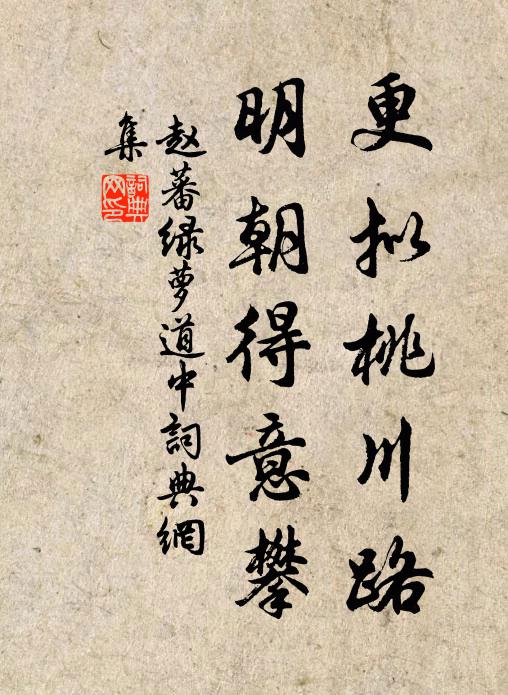 更拟桃川路
明朝得意攀
赵蕃绿萝道中詞典網
集
詞典網印